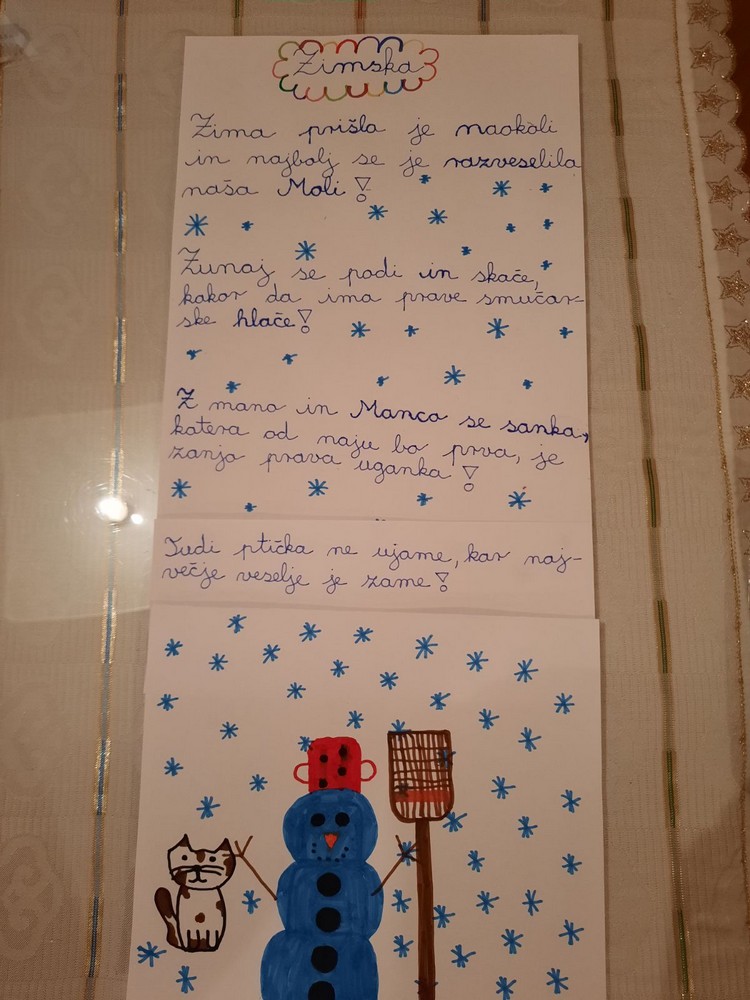 Zimska
Zima prišla je naokoli
in najbolj se je razveselila
naša Moli!
Zunaj se podi in skače,
kakor da ima prave smučar-
ske hlače!
Z mano in Manco se sanka,
katera od naju bo prva, je
zanjo prava uganka!
Tudi ptička ne ujame, kar naj-
večje veselje je zame!